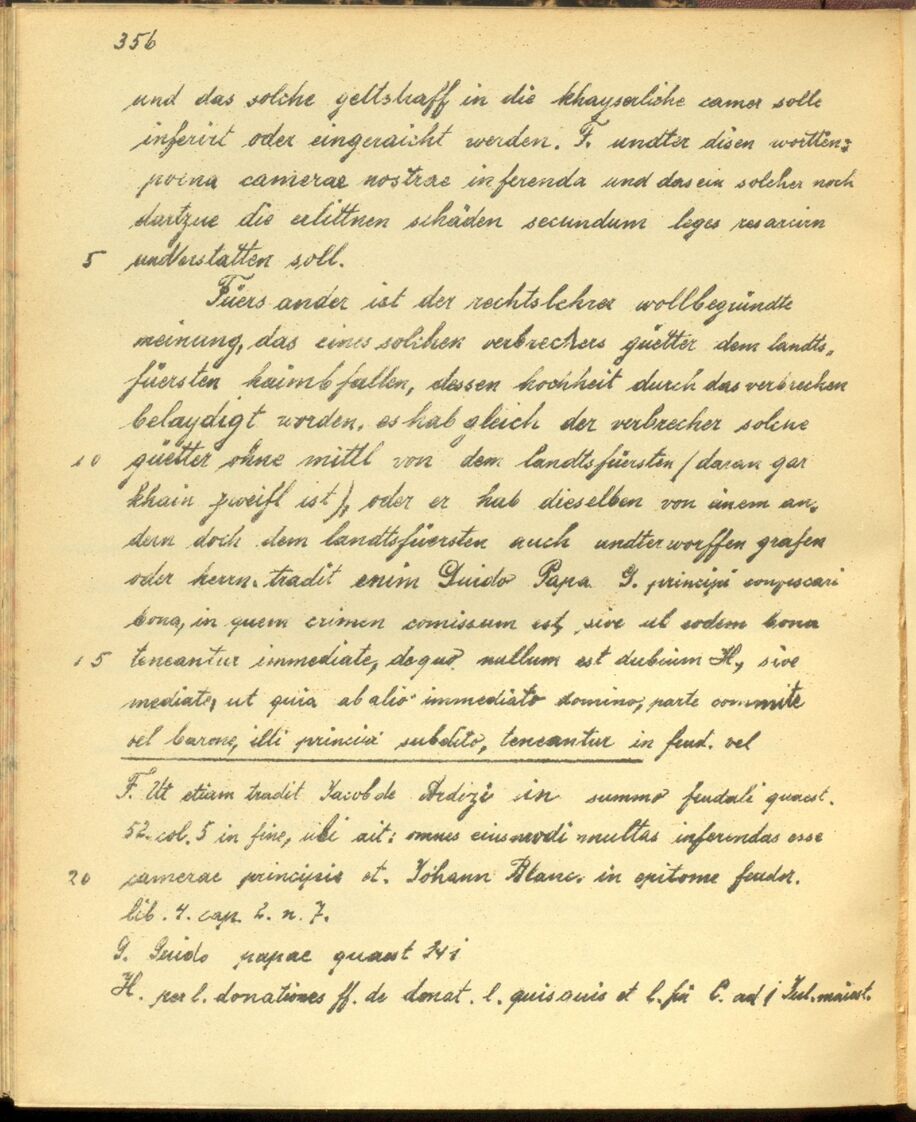 356
und das solche geltstraff in die khayserliche camer solle
inferirt oder eingeraicht werden. F. undter disen wortten:
poena camerae nostrae inferenda und das ein solcher noch
dartzue die erlittnen schäden secundum leges resarcirn
5 und erstatten soll.
Füers ander ist der rechtslehrer wollbegründte
meinung, das eines solchen verbrechers güetter dem landts„
füersten haimbfallen, dessen hochheit durch das verbrechen
belaydigt worden, es hab gleich der verbrecher solche
10 güetter ohne mittl von dem landtsfüersten (daran gar
khain zweifl ist), oder er hab dieselben von einem an„
dern doch dem landtsfüersten auch undterworffen grafen
oder herrn. tradit enim Guido Papa G. principi confiscari
bona, in quem crimen comissum est, sive ab eodem bona
15 teneantur immediate, de quo nullum est dubium H., sive
mediate, ut quia ab alio immediato domino, parte comite
vel barone, illi principi subdito, teneantur in feud. vel
F. Ut etiam tradit Jacob de Ardizi in summo feudali quaest.
52. col. 5 in fine, ubi ait: omnes eiusmodi multas inferendas esse
20 camerae principis et. Johann Blanc. in epitome feudor.
lib. 4. cap. 2. n. 7.
G. Guido papae quaest 341
H. per l. donationes ff. de donat. l. quisquis et l. fin C. ad j Jul. maiest.